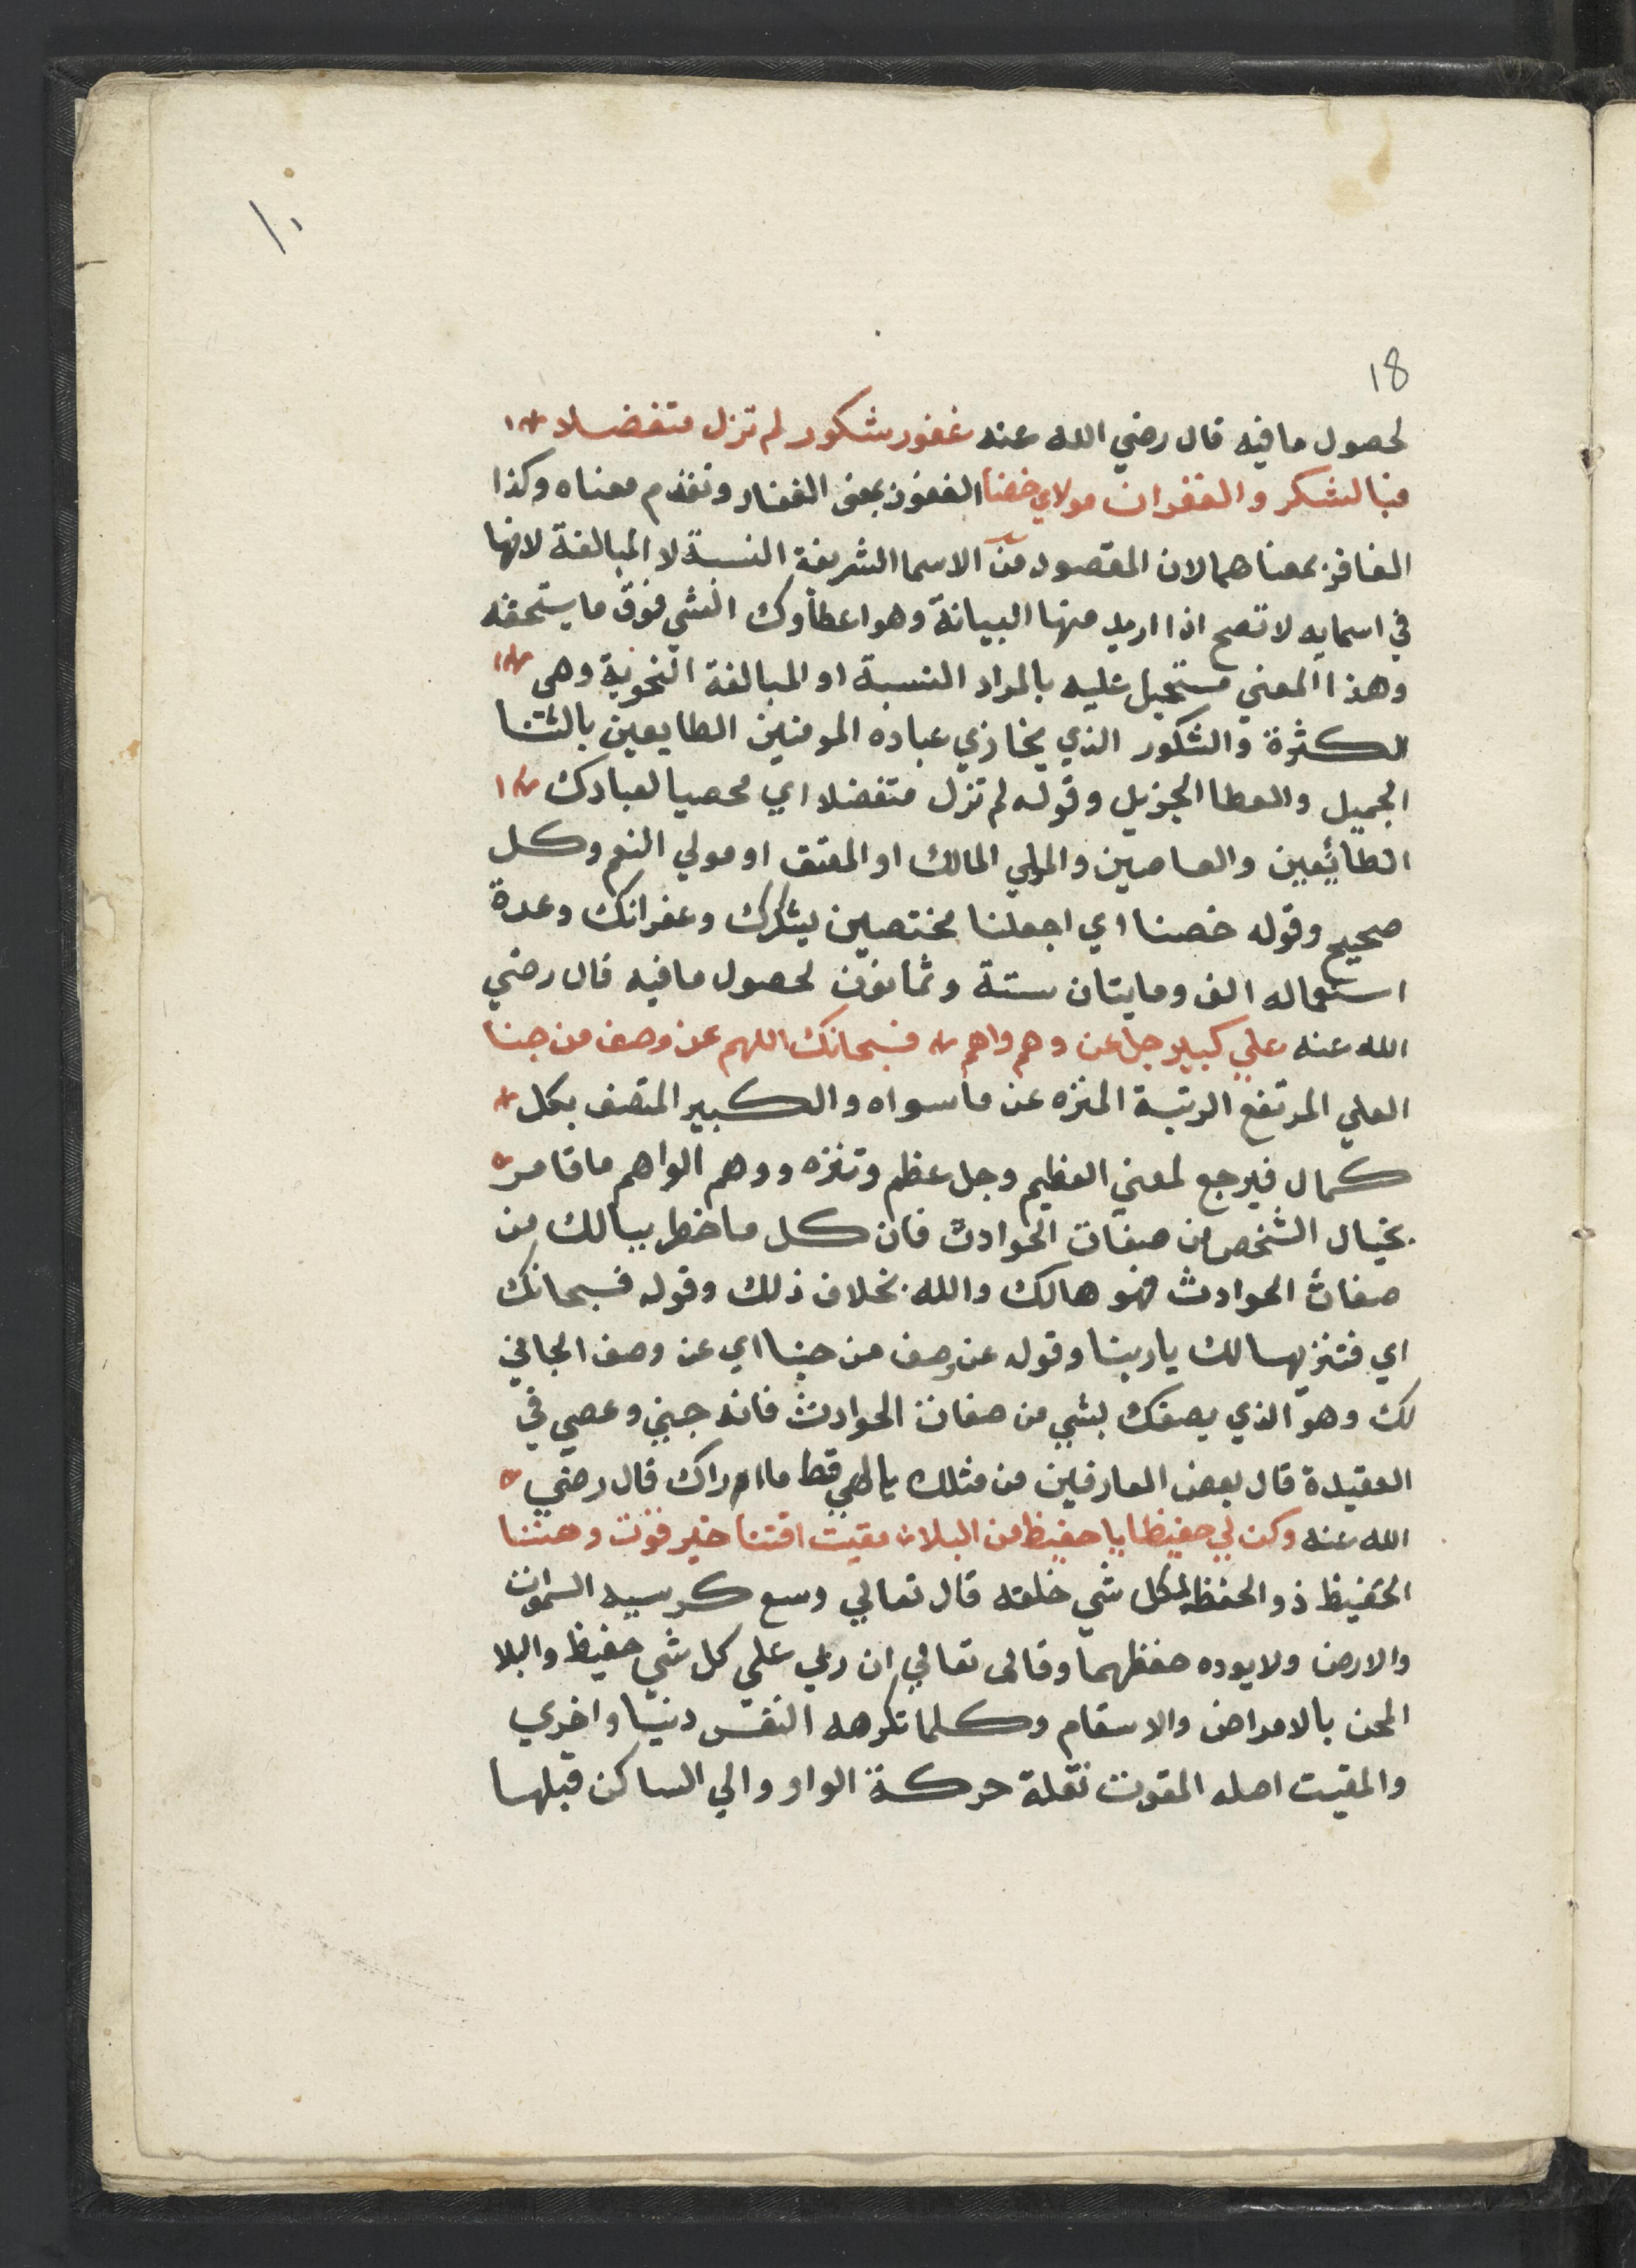 ١٠
18
لحصول ما فيه قال رضي الله عنه غفور شكور لم تزل متفضلا
فبالشكر والغفران مولاي خصنا الغفور بمعنى الغفار وتقدم معناه وكذا
الغافر بمعناهما لان المقصود من الاسما الشريفة النسبة لا المبالغة لانها
في اسمايه لا تصح اذا اريد منها البيانة وهو اعطاوك الشي فوق ما يستحقه
وهذا المعني مستحيل عليه بالمراد النسبة او المبالغة النحوية وهى
الكثرة والشكور الذي يجازي عباده المومنين الطايعين بالثنا
الجميل والعطا الجزيل وقوله لم تزل متفضلا اي محصيا لعبادك
الطائعين والعاصين والمولي المالك او المعتق او مولي النعم وكل
صحيح وقوله خصنا اي اجعلنا مختصين بشكرك وغفرانك وعدة
استعماله الف ومايتان ستة وثمانون لحصول ما فيه قال رضي
الله عنه علي كبير جل عن وهم واهم فسبحانك اللهم عن وصف من جنا
العلي المرتفع الرتبة المنزه عن ما سواه والكبير المتصف بكل
كمال فيرجع لمعني العظيم وجل عظم وتنزه ووهم الواهم ما قام
بخيال الشخص من صفات الحوادث فان كل ما خطر ببالك من
صفات الحوادث فهو هالك والله بخلاف ذلك وقوله فسبحانك
اي فتنزيها لك يا ربنا وقوله عن وصف من جنا اي عن وصف الجاني
لك وهو الذي يصفك بشي من صفات الحوادث فانه جني وعصي في
العقيدة قال بعض العارفين من مثلك يا الهي قط ما ادراك قال رضي
الله عنه وكن لي حفيظا يا حفيظ من البلا مقيت اقتنا خير قوت وهننا
الحفيظ ذو الحفظ لكل شي خلقه قال تعالي وسع كرسيه السموات
والارض ولا يوده حفظهما وقالى تعالي ان ربي علي كل شي حفيظ والبلا
المحن بالامراض والاسقام وكلما تكرهه النفس دنيا واخري
والمقيت اصله المقوت نقلة حركة الواو والي الساكن قبلها